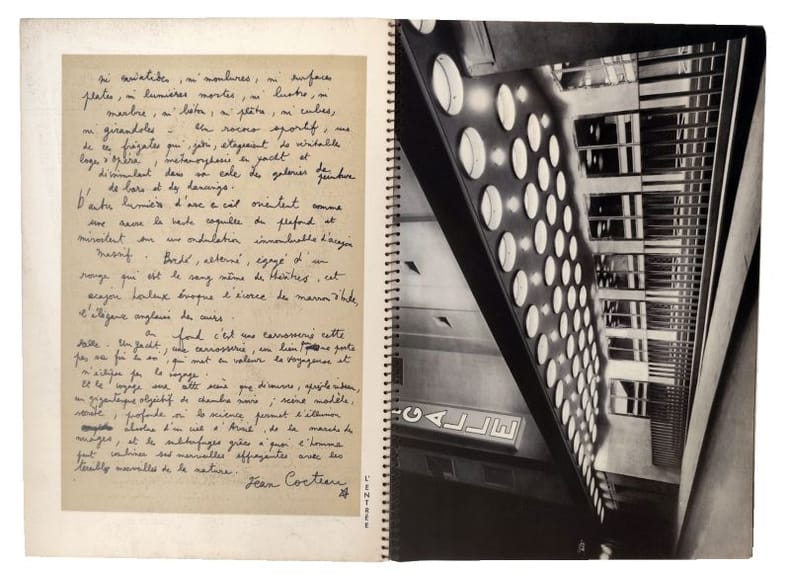 ni cariatides, ni moulures, ni surfaces
plates, ni lumières mortes, ni lustre, ni
marbre, ni béton, ni plâtre, ni cubes,
ni girandoles - Un rococo sportif, une
de ces frégates qui, jadis, étageaient de véritables
loges d'Opéra, métamorphosée en yacht et
dissimulant dans sa cale des galeries de peinture
de bars et des dancings.
D'autres lumières d'arc en ciel orientent comme
une nacre la vaste coquille du plafond et
miroitent sur une ondulation innombrable d'acajou
massif. Bordé, alterné, égayé d'un
rouge qui est le sang même des théâtres, cet
acajou houleux évoque l'écorce des marrons d'Inde,
l'élégance anglaise des cuirs.
Au fond c'est une carrosserie cette
salle. Un yacht, une carrosserie, un lieu porte
pas sa fin en soi, qui met en valeur la voyageuse et
n'éclipse pas le voyage.
Et le voyage sera cette scène que découvre, après le rideau,
un gigantesque objectif de chambre noire; scène modèle,
profonde où la science permet l'illusion
absolue d'un ciel d'Avril, de la marche des
nuages, et les subterfuges grâce à quoi l'homme
peut combiner ses merveilles effrayantes avec les
terribles merveilles de la nature.
Jean Cocteau
L'ENTRÉE
GALLE